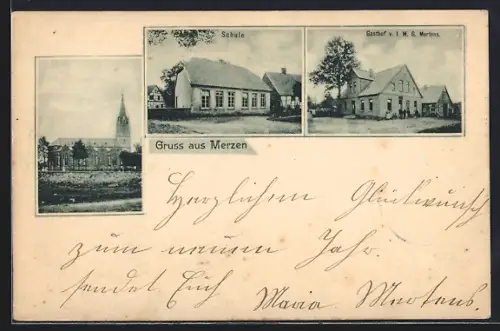 Schule
Gasthof v. J. W. G. Mertens.
Gruss aus Merzen
Herzlichem Glückwünsch
zum neuen Jahr.
sendet Euch
Maria Mertens.